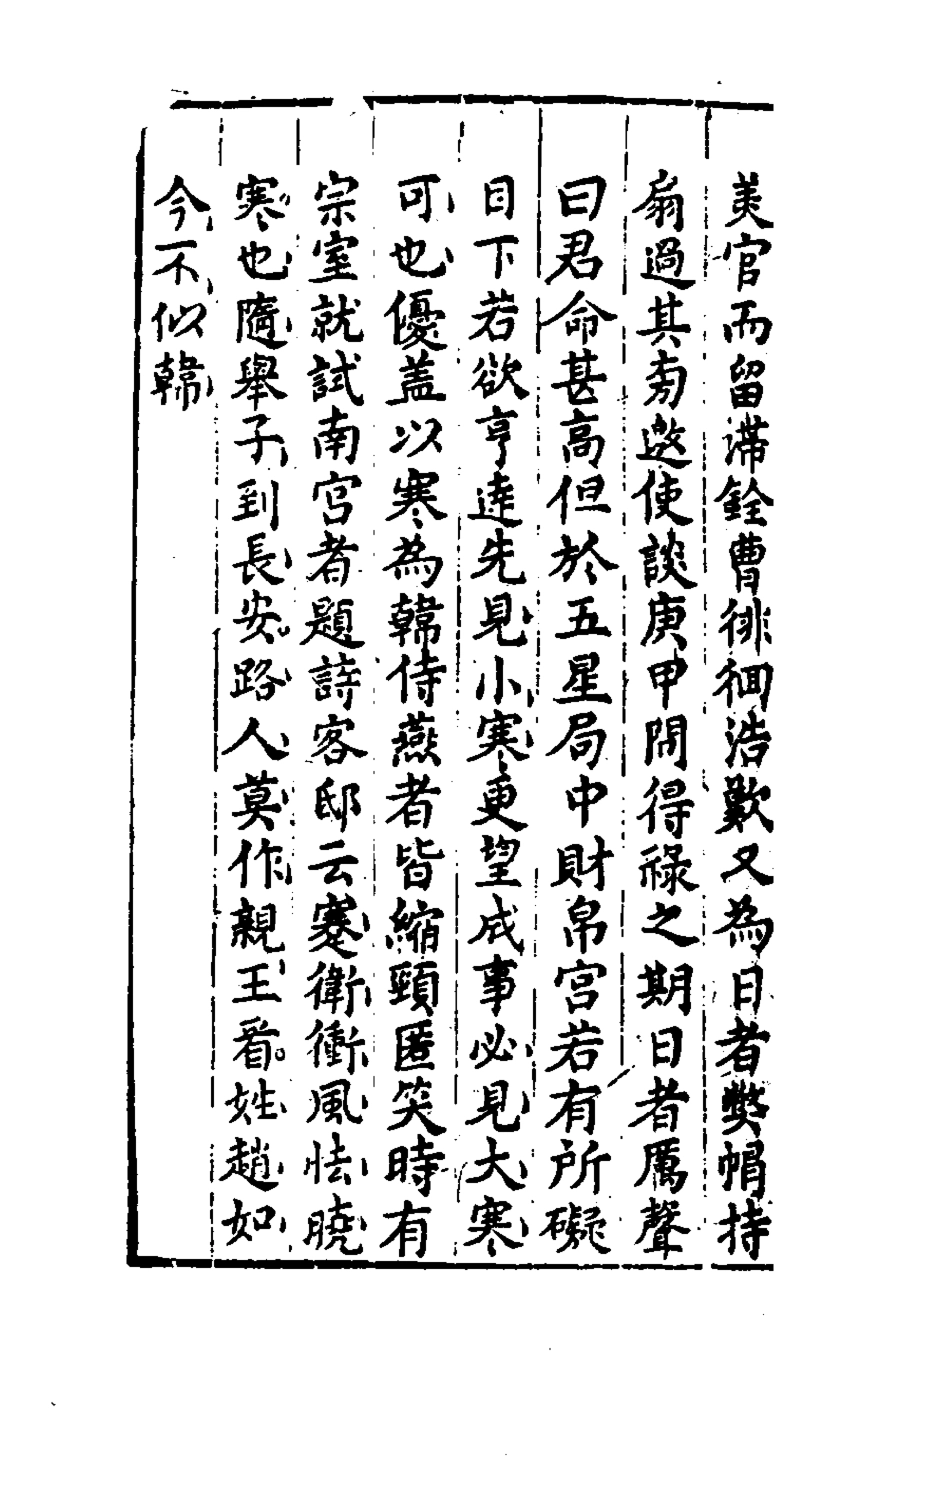 美官而留滯銓曹徘徊浩歎又為日者獘帽持
扇過其旁邀使談庚甲問得祿之期日者厲聲
曰君命甚高但於五星局中財帛宮若有所礙
目下若欲亨達先見小寒更望成事必見大寒
可也優盖以寒為韓侍燕者皆縮頸匿笑時有
宗室就試南宮者題詩客邸云蹇衛衝風怯曉
寒也隨舉子到長安路人莫作親王看姓趙如
今不似韓